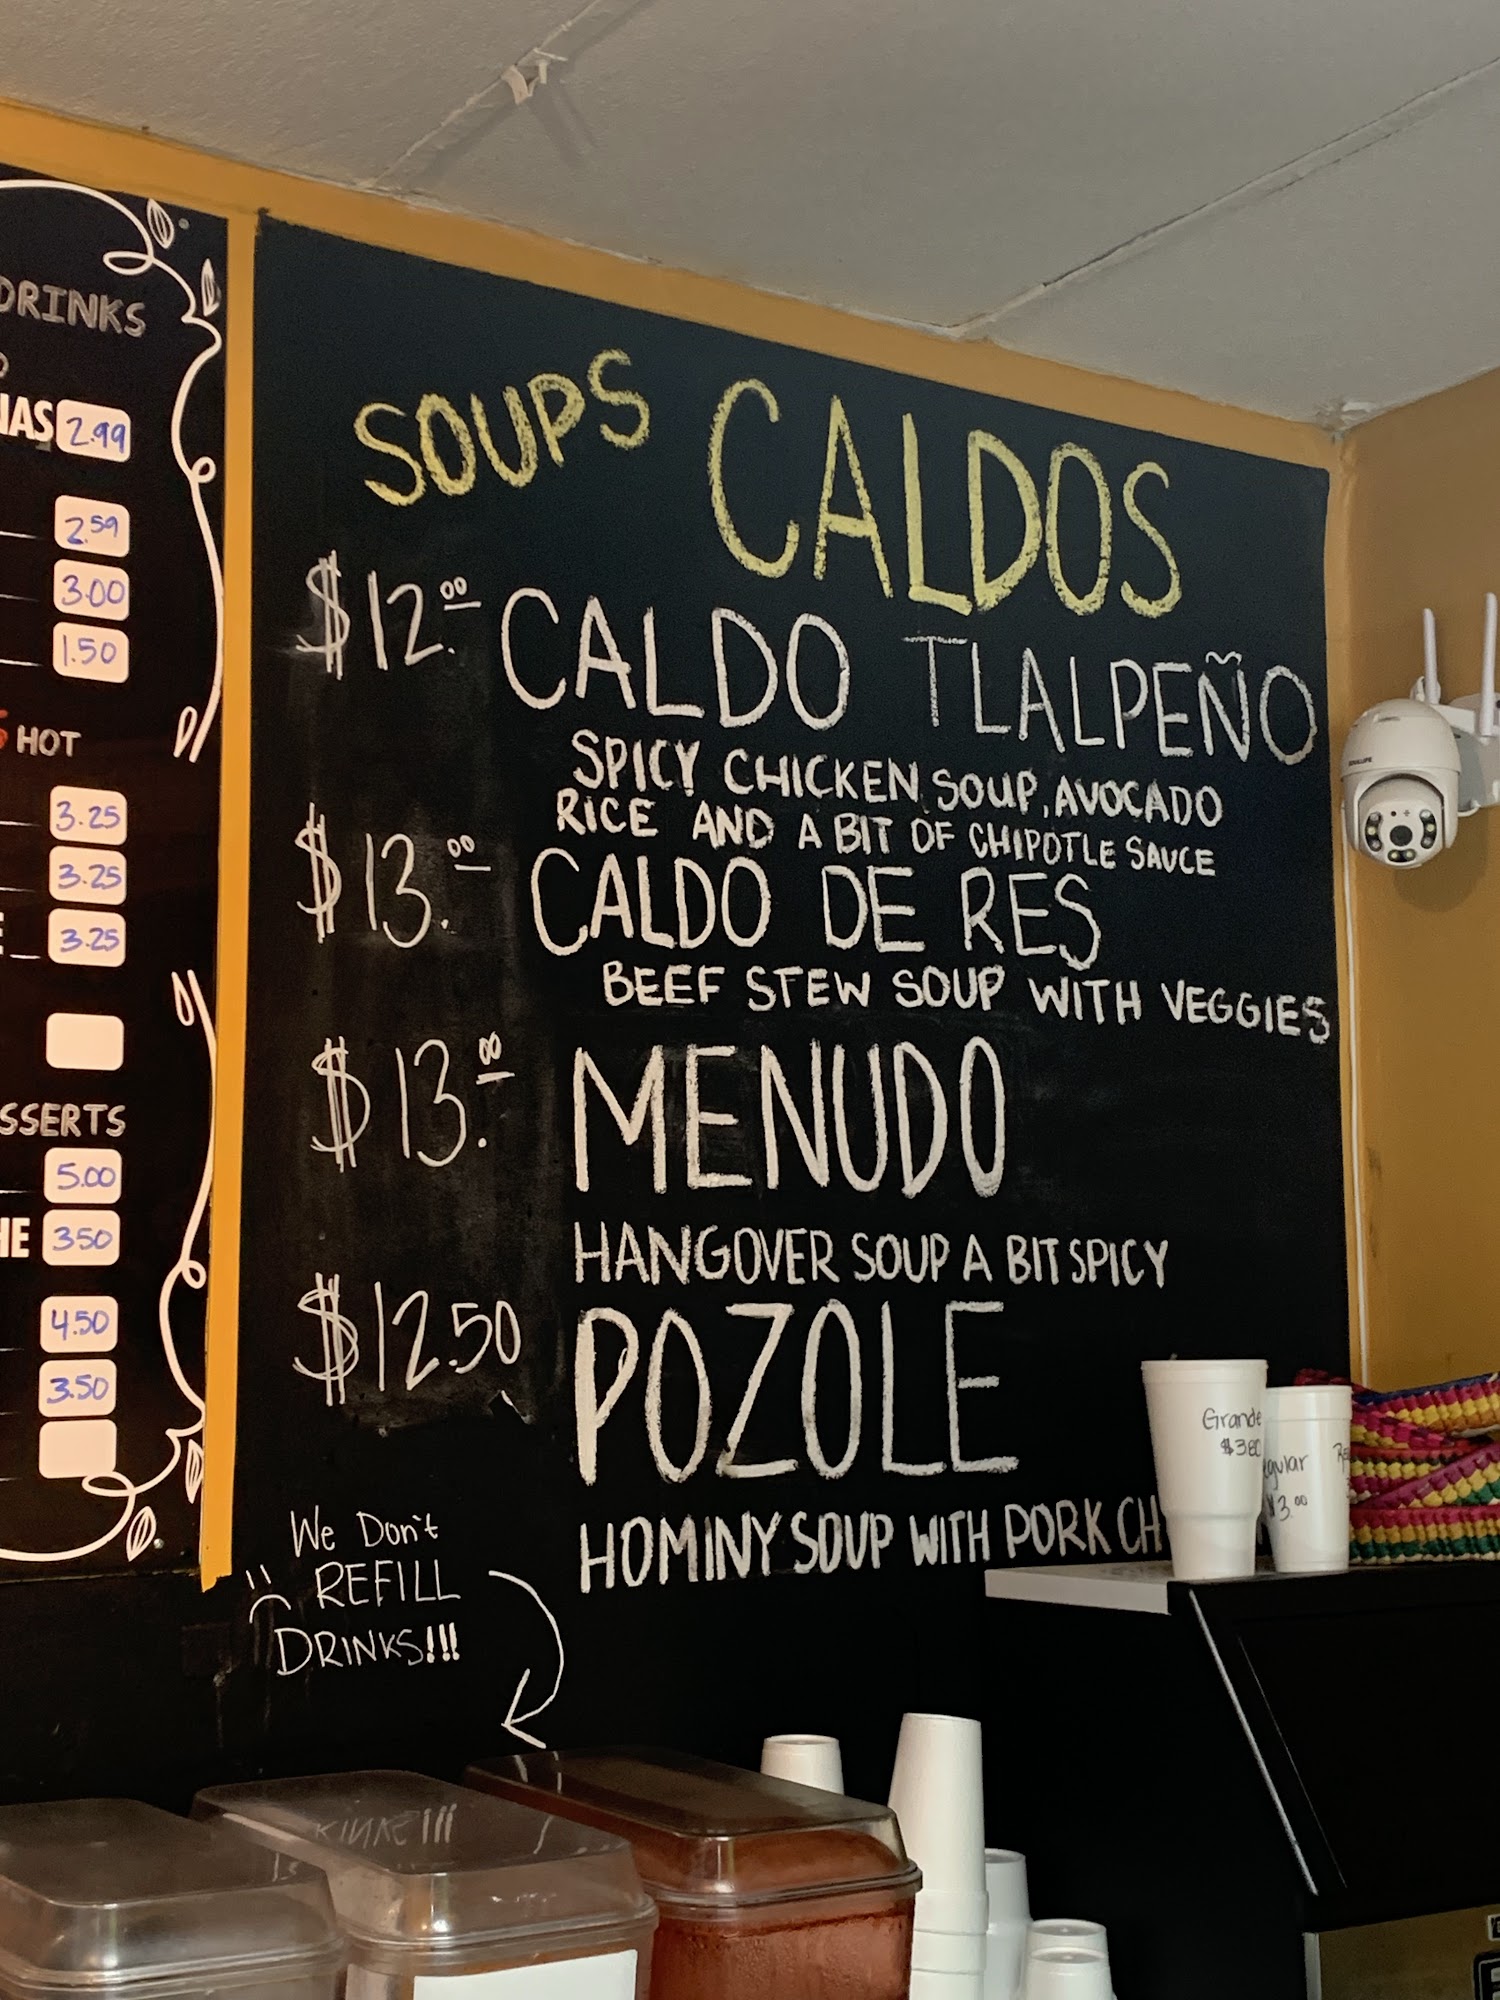 DRINKS
2.99
2.59
3.00
1.50
HOT
3.25
3.25
3.25
5.00
3.50
4.50
3.50
SOUPS CALDOS
$12.00 CALDO TLALPEÑO
SPICY CHICKEN SOUP, AVOCADO
RICE AND A BIT OF CHIPOTLE SAUCE
$13.00 CALDO DE RES
BEEF STEW SOUP WITH VEGGIES
$13.00 MENUDO
HANGOVER SOUP A BIT SPICY
$12.50 POZOLE
HOMINY SOUP WITH PORK
We Don't
REFILL
DRINKS!!!
Grande
$3.00